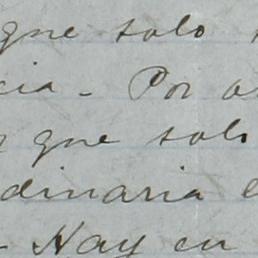 que solo
cia - Por
que solo
dinaria
- Hay en